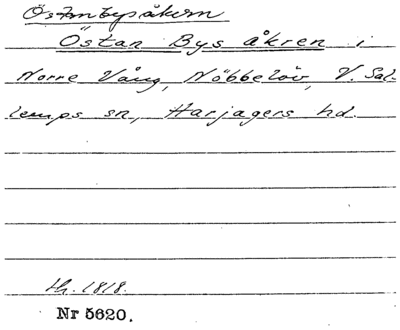 Östanbysåkern
Östan Bys åkren i
Norre Vång, Nöbbelöv, V. Sal-
lerups sn, Harjagers hd.
th. 1818.
Nr 5620.